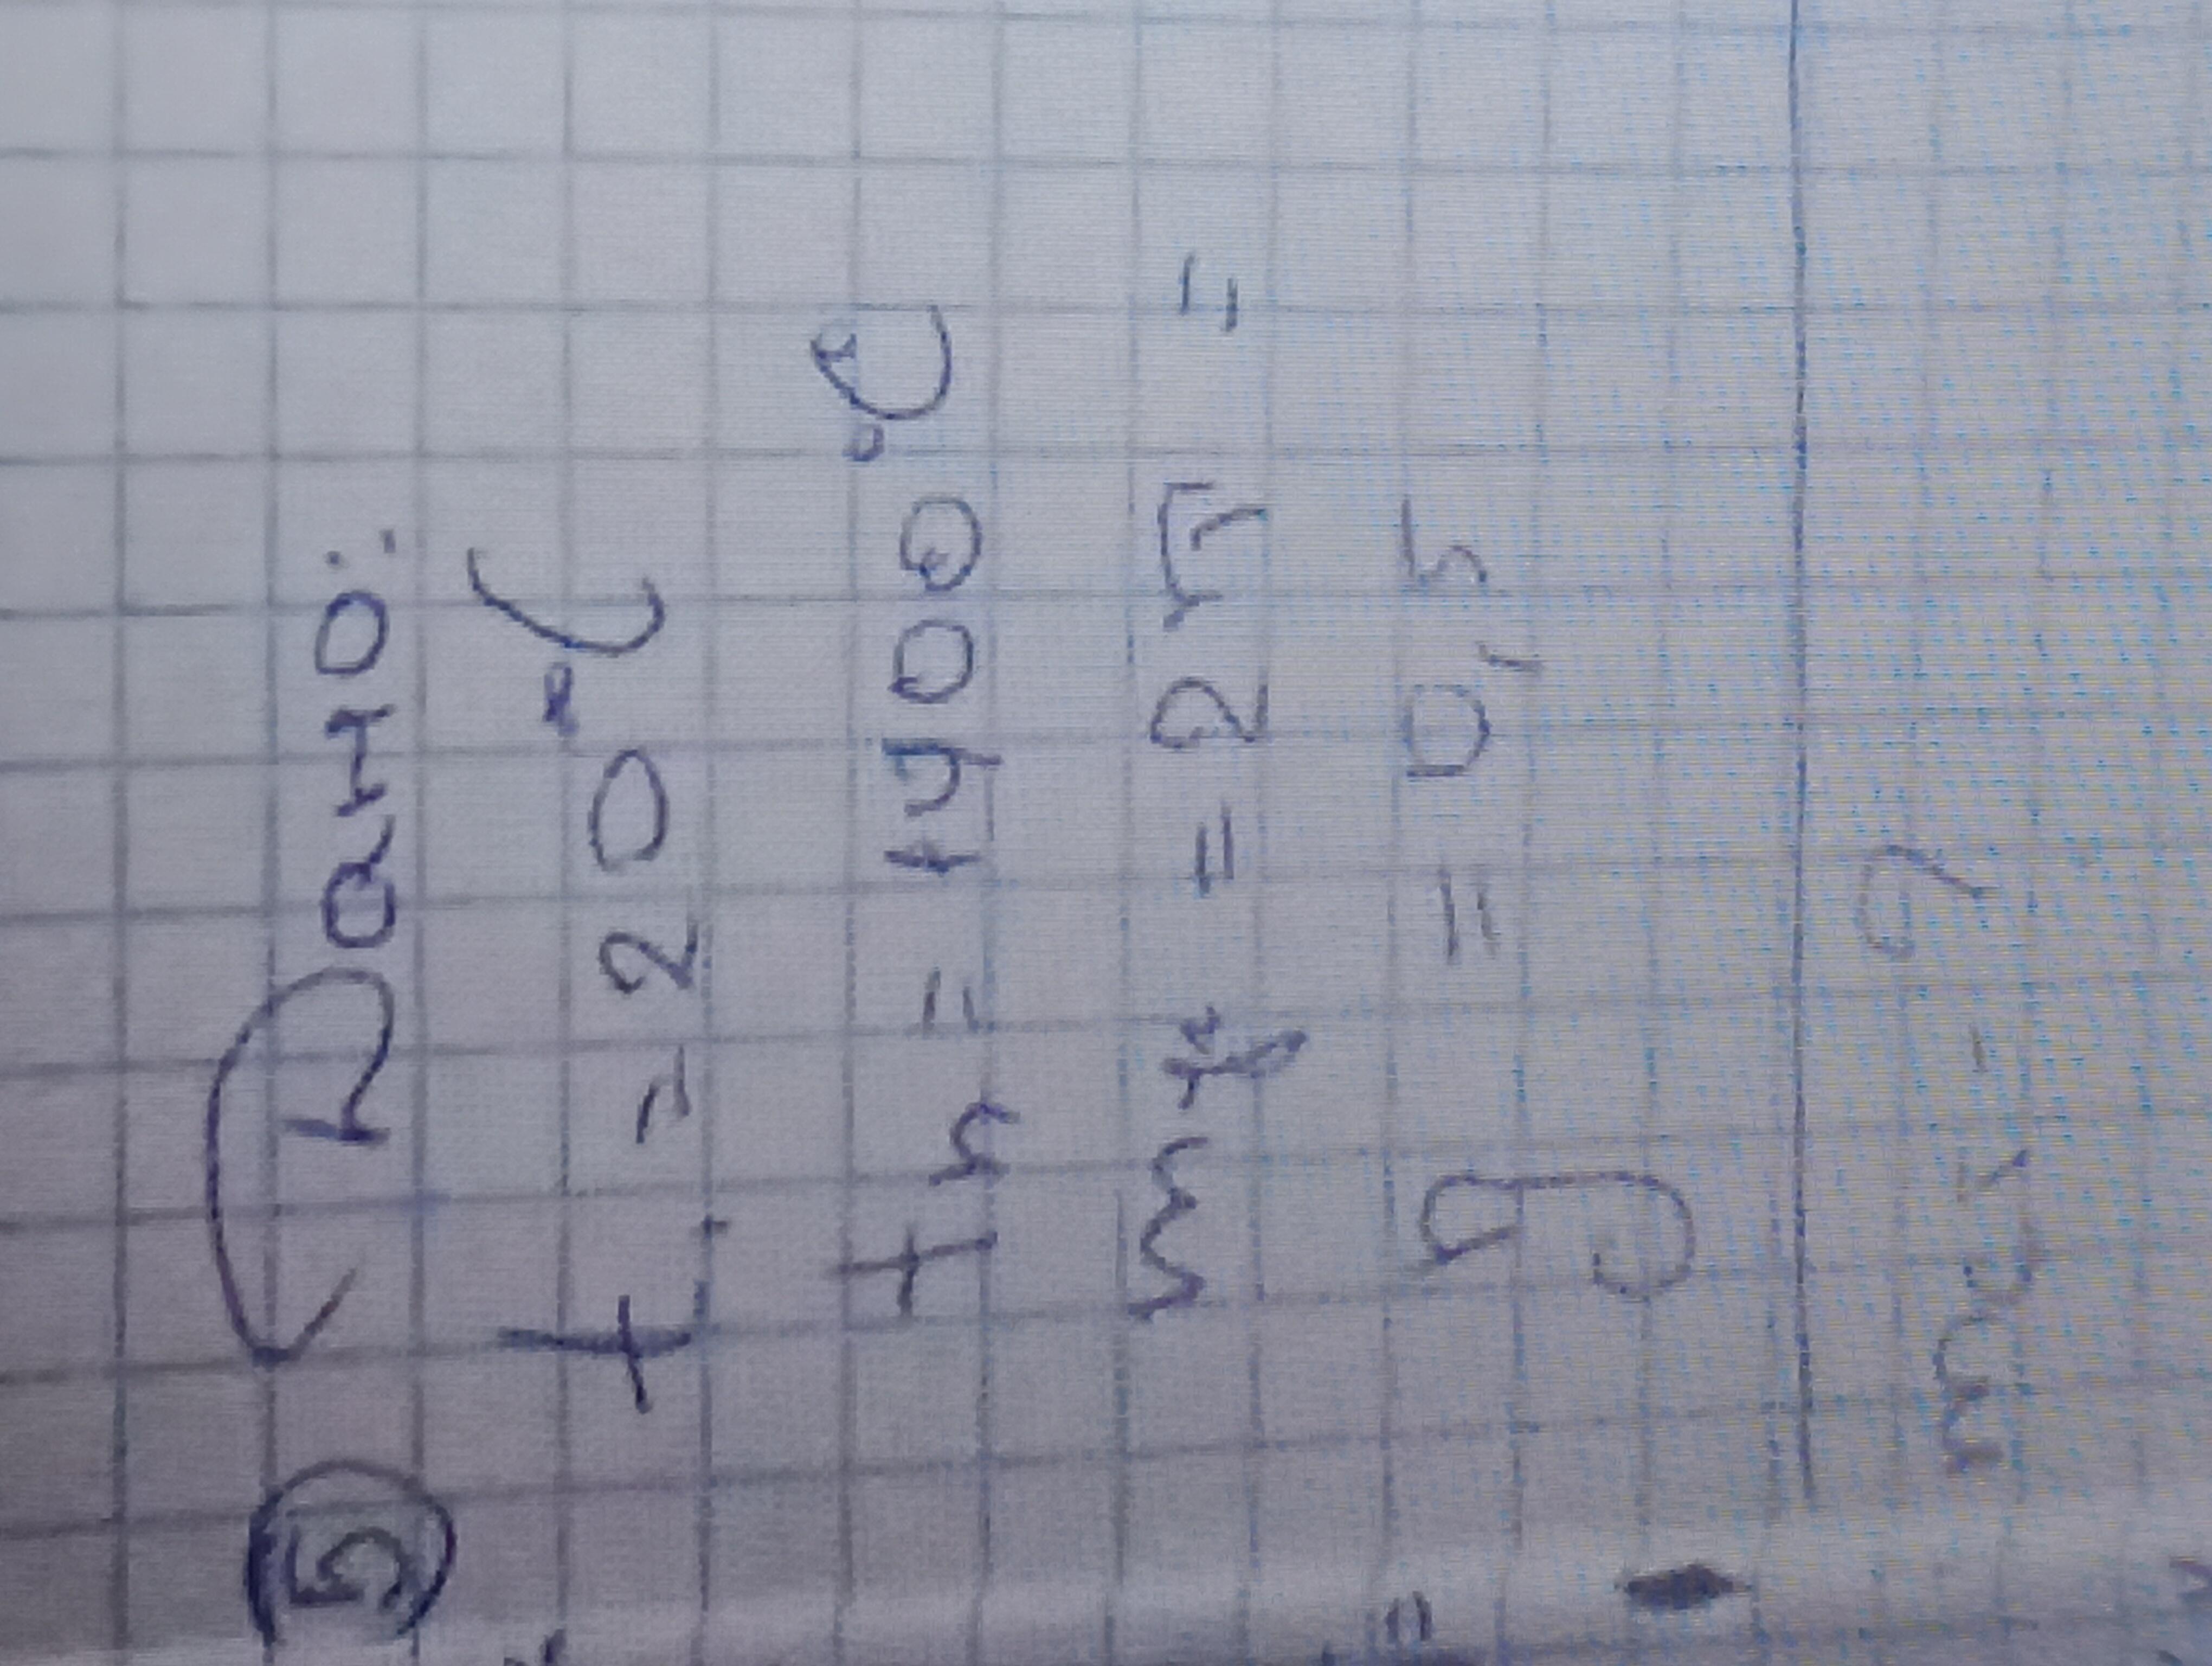 5 Дано:
t₁ = 20°C
t₂ = 1400°C
m = 2т =
= 0,5